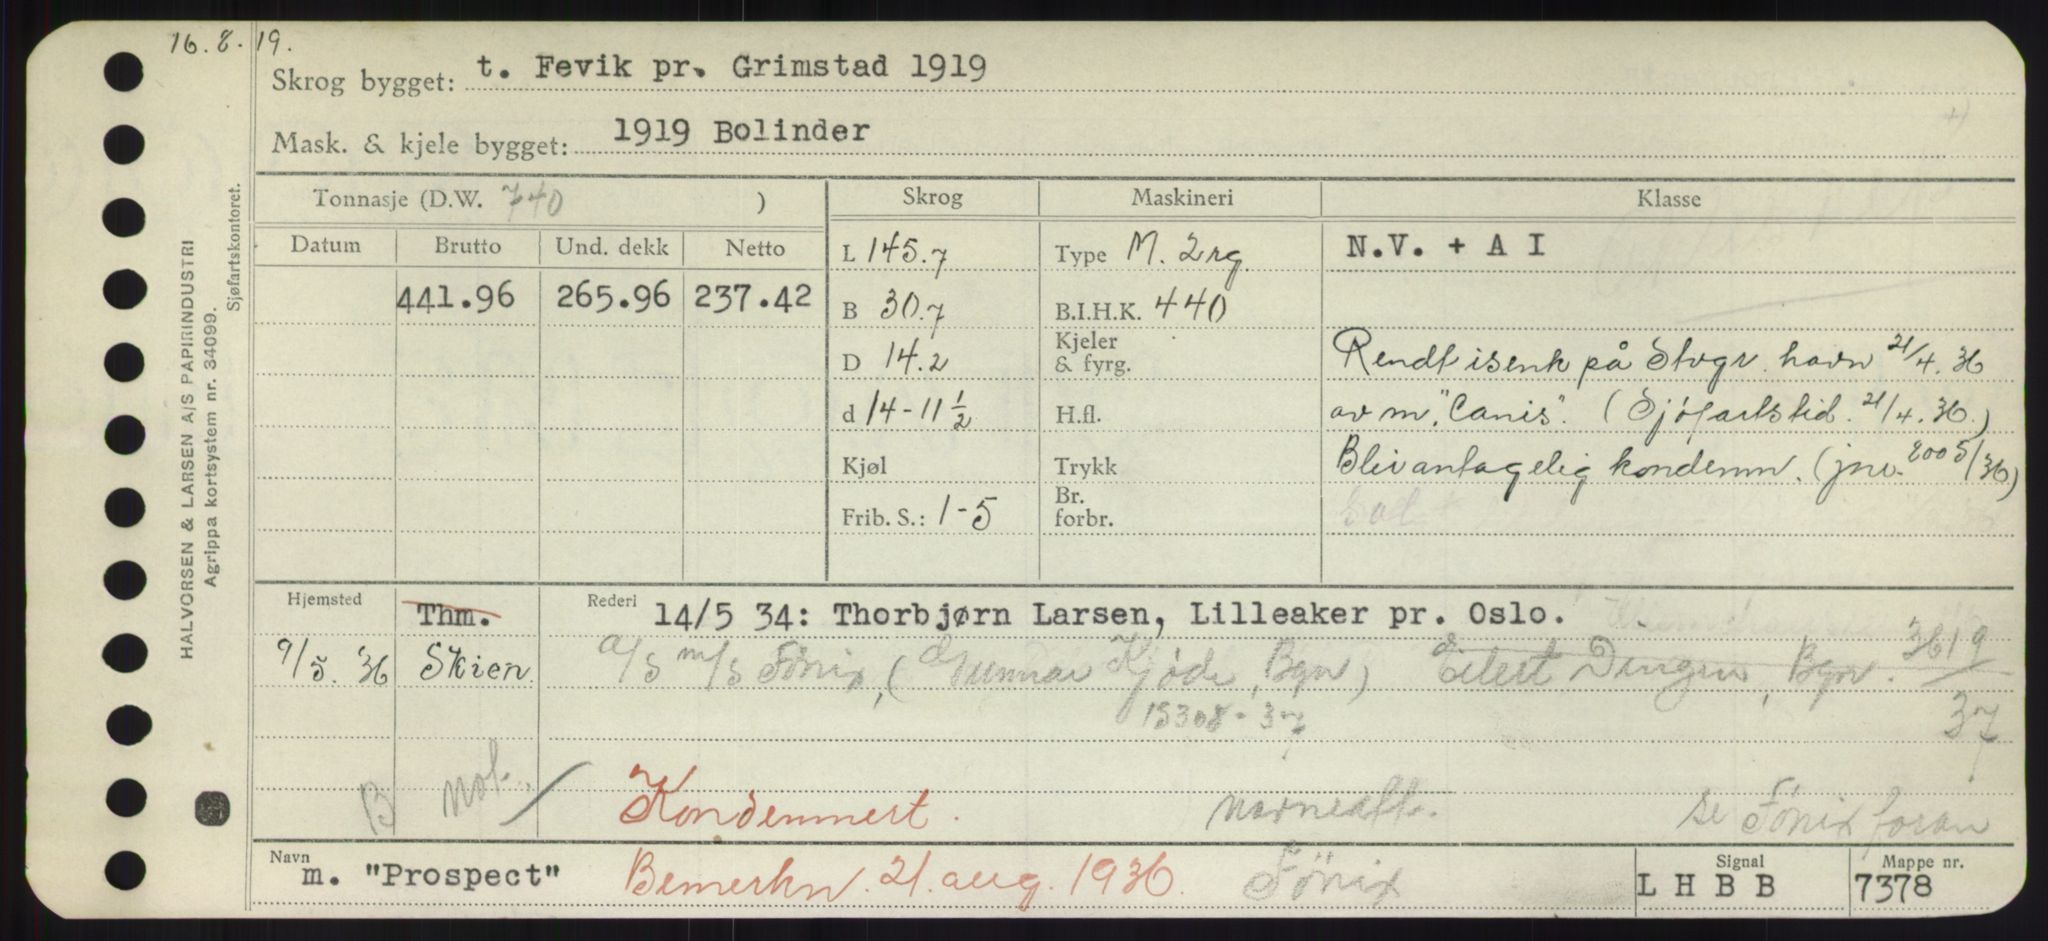 16.8.19.
Skrog bygget: t. Fevik pr. Grimstad 1919
Mask. & kjele bygget: 1919 Bolinder
Tonnasje (D.W. 740 )
Skrog
Maskineri
Klasse
Datum Brutto Und. dekk Netto
441.96 265.96 237.42
L 145.7
B 30.7
D 14.2
d 14-11 1/2
Kjøl
Frib. S.: 1-5
Type M. 2rg.
B.I.H.K. 440
Kjeler
& fyrg.
H.fl.
Trykk
Br.
forbr.
N.V. + A I
Rendt isenk på Stvgr. havn 21/4.36
av m. "Canis". (Sjøfartstid. 21/4.36.)
Blir antagelig kondemn. (jnr. 2005/36)
Hjemsted Thm. Rederi 14/5 34: Thorbjørn Larsen, Lilleaker pr. Oslo.
9/5. 36 Skien. A/S m/s Fönix, (Gunnar Kjøde, Bgn) Eilert Bgn. 3619/37
15308-37
B not. Kondemnert. navneaft. se Fönix foran
Navn m. "Prospect" Bemerkn. 21. aug. 1936. Fönix
Signal L H B B
Mappe nr. 7378
HALVORSEN & LARSEN A/S PAPIRINDUSTRI
Agrippa kortsystem nr. 34099.
Sjøfartskontoret.